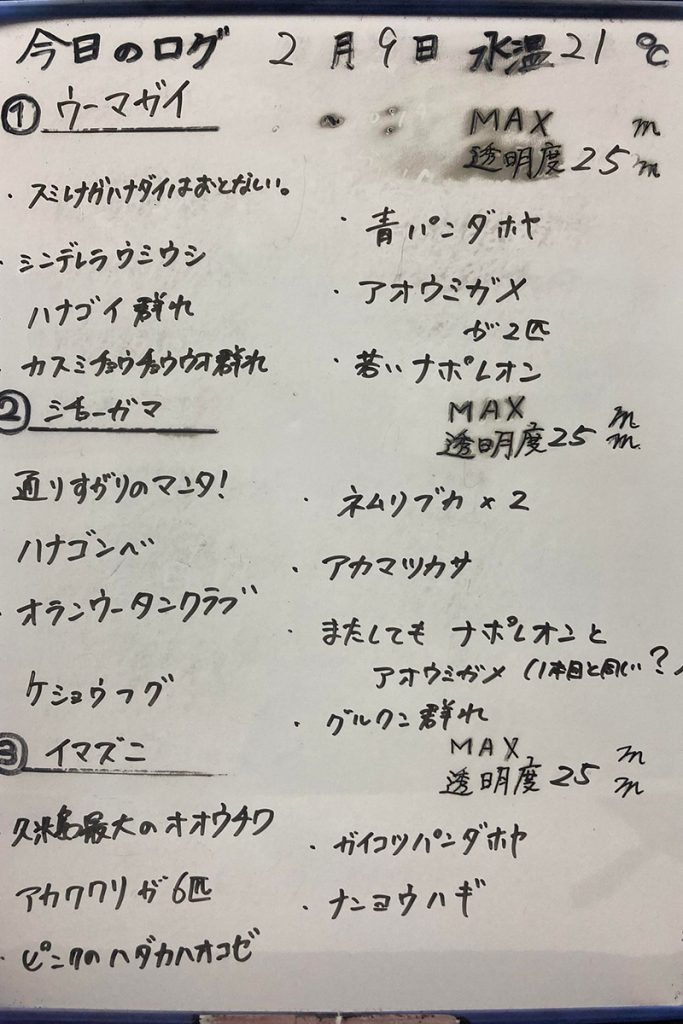 今日のログ 2月9日 水温21℃
① ウーマガイ
MAX m
透明度 25 m
・スミレナガハナダイはおとなしい。
・シンデレラウミウシ
ハナゴイ群れ
・カスミチョウチョウウオ群れ
・青パンダホヤ
・アオウミガメ
が2匹
・若いナポレオン
② シチューガマ
MAX m
透明度 25 m
通りすがりのマンタ!
ハナゴンベ
・オランウータンクラブ
ケショウフグ
・ネムリブカ×2
・アカマツカサ
・またしても ナポレオンと
アオウミガメ (1本目と同じ?)
・グルクン群れ
③ イマズニ
MAX m
透明度 25 m
久米島最大のオオウチワ
アカククリが6匹
・ピンクのハダカハオコゼ
・ガイコツパンダホヤ
・ナンヨウハギ